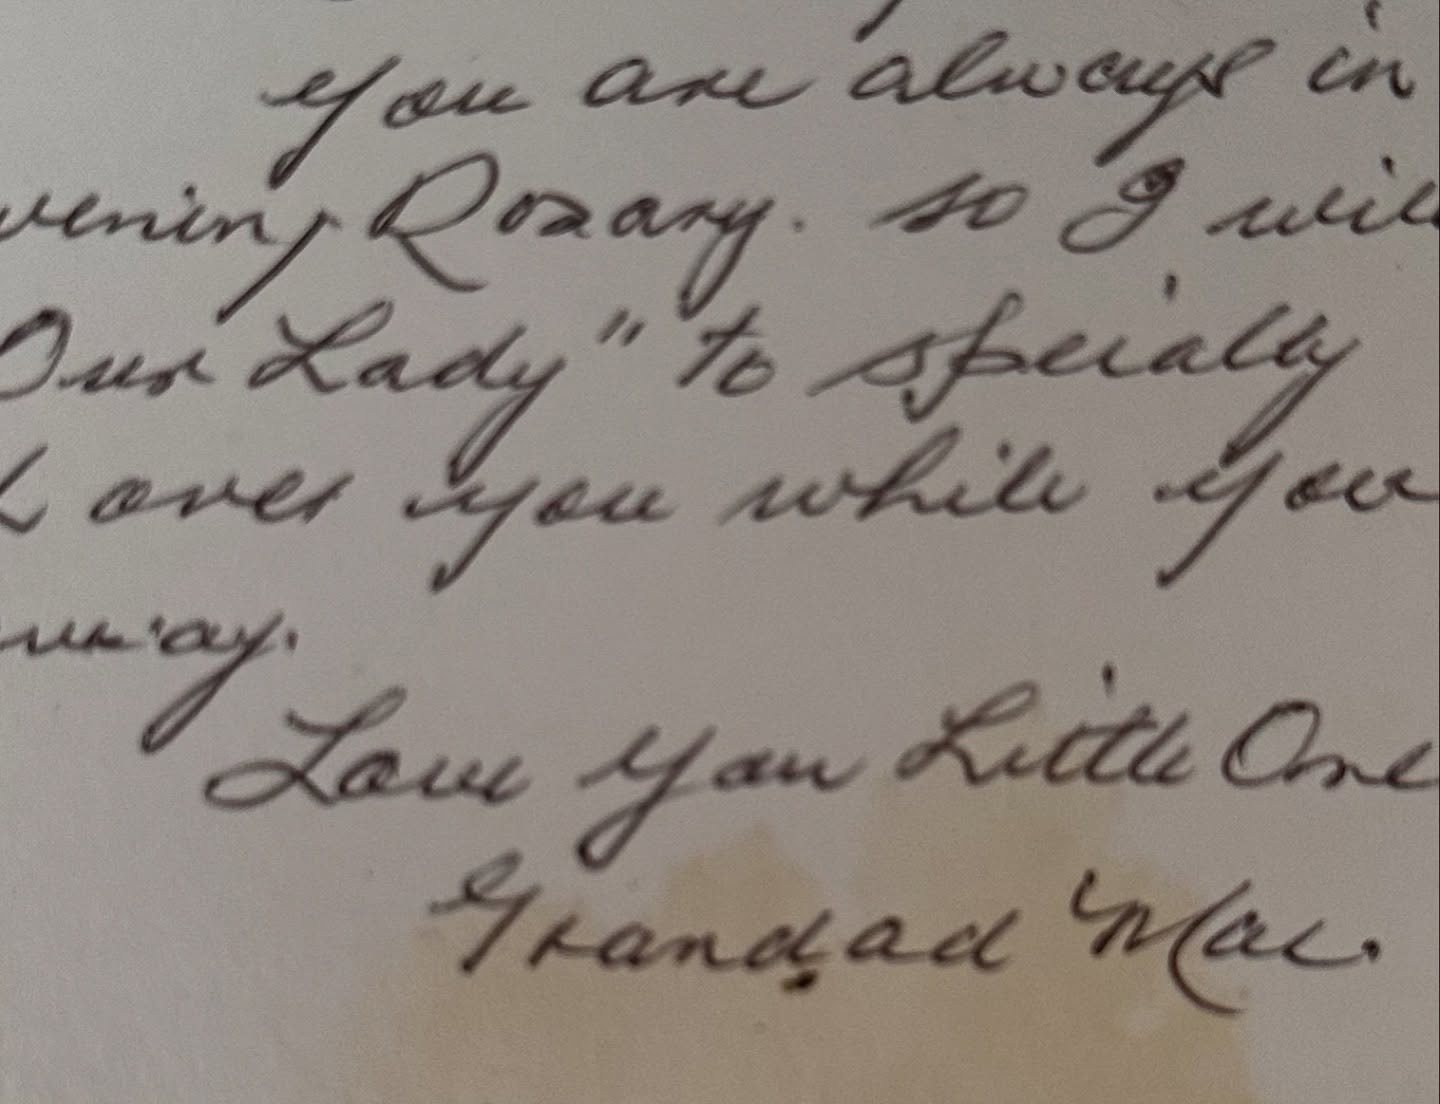 you are always in
vening Rosary. so I will
Our Lady" to spcially
over you while you
away.
Love you Little One
Grandad Mac.